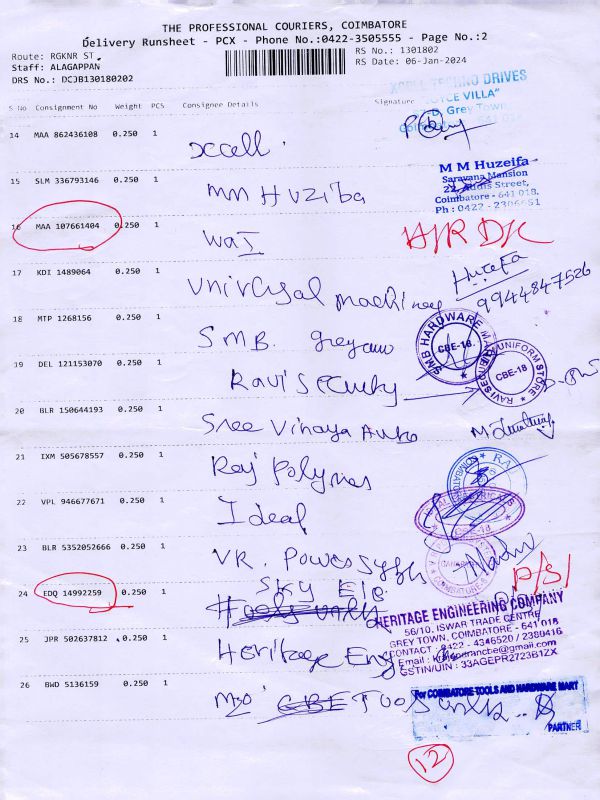 THE PROFESSIONAL COURIERS, COIMBATORE
Delivery Runsheet - PCX - Phone No.:0422-3505555 - Page No.:2
Route: RGKNR ST
RS No.: 1301802
Staff: ALAGAPPAN
RS Date: 06-Jan-2024
DRS No.: DCJB130180202
S No Consignment No Weight PCS Consignee Details Signature
TECHNO DRIVES
"JOYCE VILLA"
D, Grey Town
14 MAA 862436108 0.250 1
Xcell
15 SLM 336793146 0.250 1
MM Huziba
M M Huzeifa
Saravana Mansion
22, Street,
Coimbatore - 641 018.
Ph : 0422 - 2306651
16 MAA 107661404 0.250 1
17 KDI 1489064 0.250 1
Univrsal
Huzefa
9944847526
18 MTP 1268156 0.250 1
SMB.
SMB HARDWARE MART
CBE-18.
19 DEL 121153070 0.250 1
Ravi Security
RAVI SECURITY UNIFORM STORE
CBE-18
20 BLR 150644193 0.250 1
Sree Vinaya Auto
21 IXM 505678557 0.250 1
Raj Polymas
22 VPL 946677671 0.250 1
Ideal
23 BLR 5352052666 0.250 1
VR. Power
24 EDQ 14992259 0.250 1
Sky Ele
P/S/
HERITAGE ENGINEERING COMPANY
56/10, ISWAR TRADE CENTRE
GREY TOWN, COIMBATORE - 641 018
CONTACT : 0422 - 4346520 / 2380416
GSTIN/UIN : 33AGEPR2723B1ZX
25 JPR 502637812 0.250 1
Heritage Eng
26 BWD 5136159 0.250 1
For COIMBATORE TOOLS AND HARDWARE MART
PARTNER
12